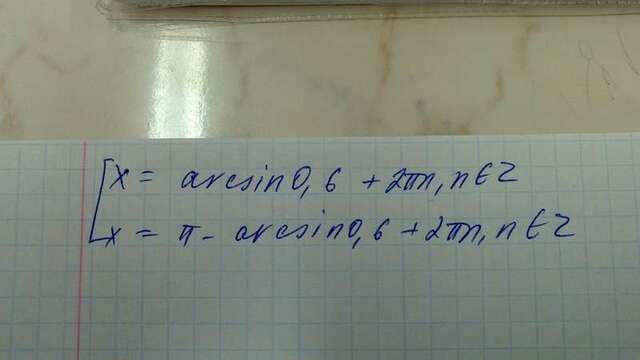 x = arcsin0,6 + 2πn, n∈Z
x = π - arcsin0,6 + 2πn, n∈Z